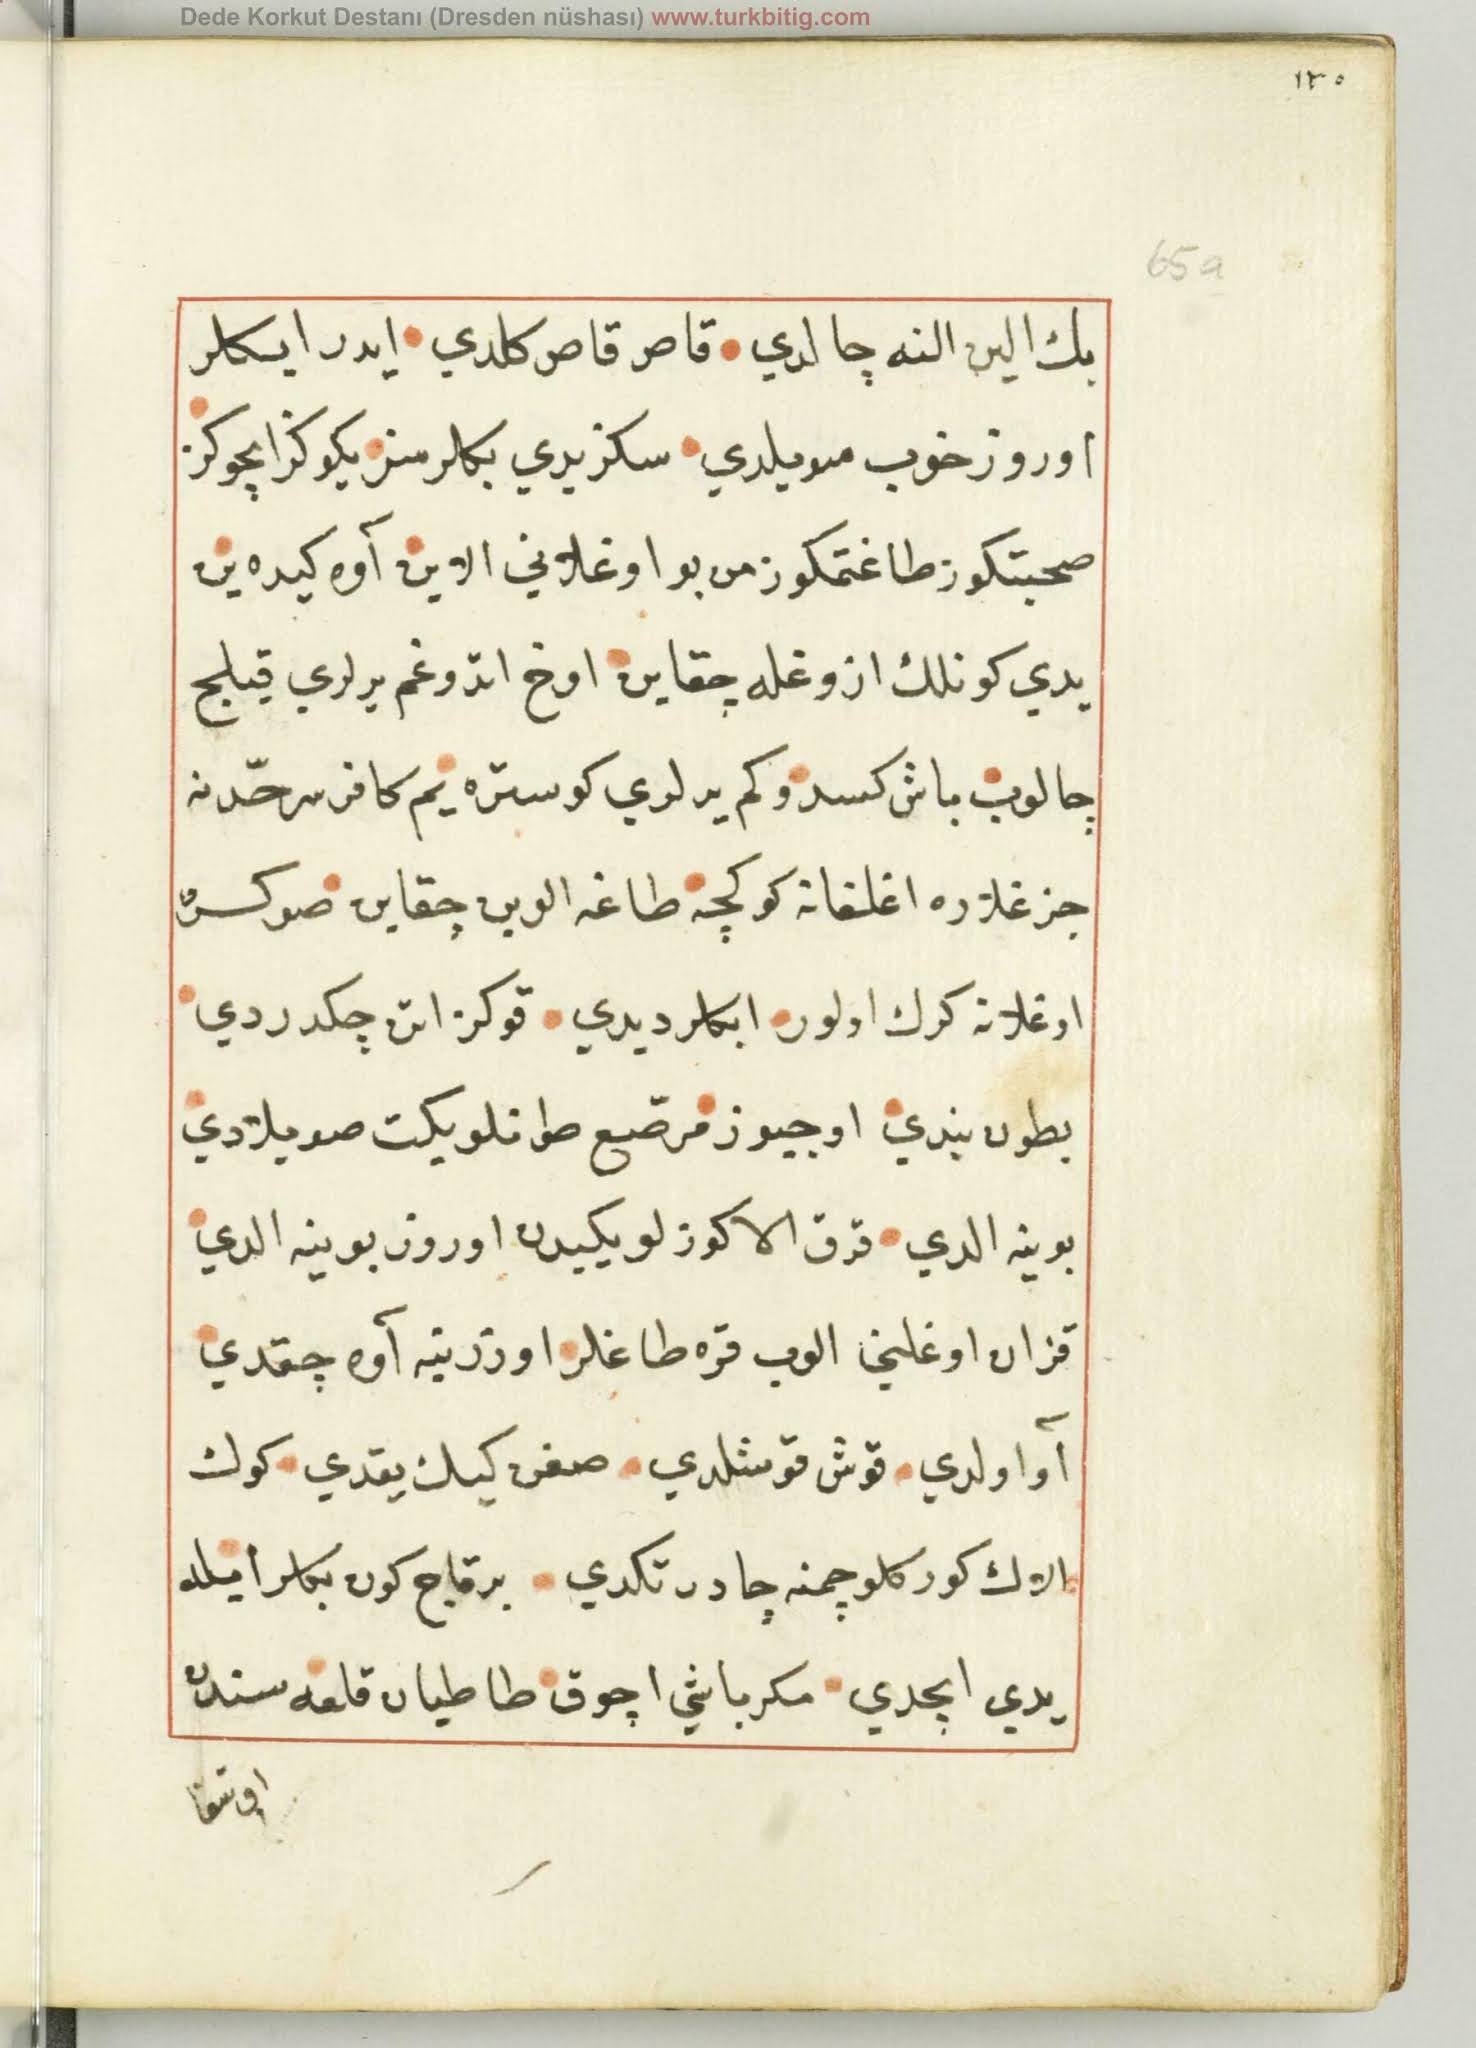 Dede Korkut Destanı (Dresden nüshası) www.turkbitig.com
١٢٥
65a
بك الین النه چالدي قاص قاص كلدي ایدر ایبكلر
اوروز خوب سویلدي سكز یدي بكلر سز یكوكز ایچوكز
صحبتكوز طاغتمكوز من بو اوغلاني الاین آوه كیده ین
یدي كونلك ازوغله چقاین اوخ اتدوغم یرلري قیلج
چالوب باش كسدوكم یرلري كوستره یم كافر سرحدنه
جزغلاره اغلغانه كوكچه طاغه الوبن چقاین صوكسن
اوغلانه كرك اولور ابكلر دیدي قوكز اتن چكدردي
بطون بندي اوجیوز مرصع طونلو یكت صویلادي
بوینه الدي قرق الا كوزلو یكیدن اوروز بوینه الدي
قزان اوغلني الوب قره طاغلر اوزرینه آوه چقدي
آو اولدي قوش قوشلدي صغن كیك یقدي كوك
الاك كوركلو چمنه چادر تكدي بر قاج كون بكلر ایله
یدي ایچدي مكر باشي اچوق طاطیان قلعه سندن